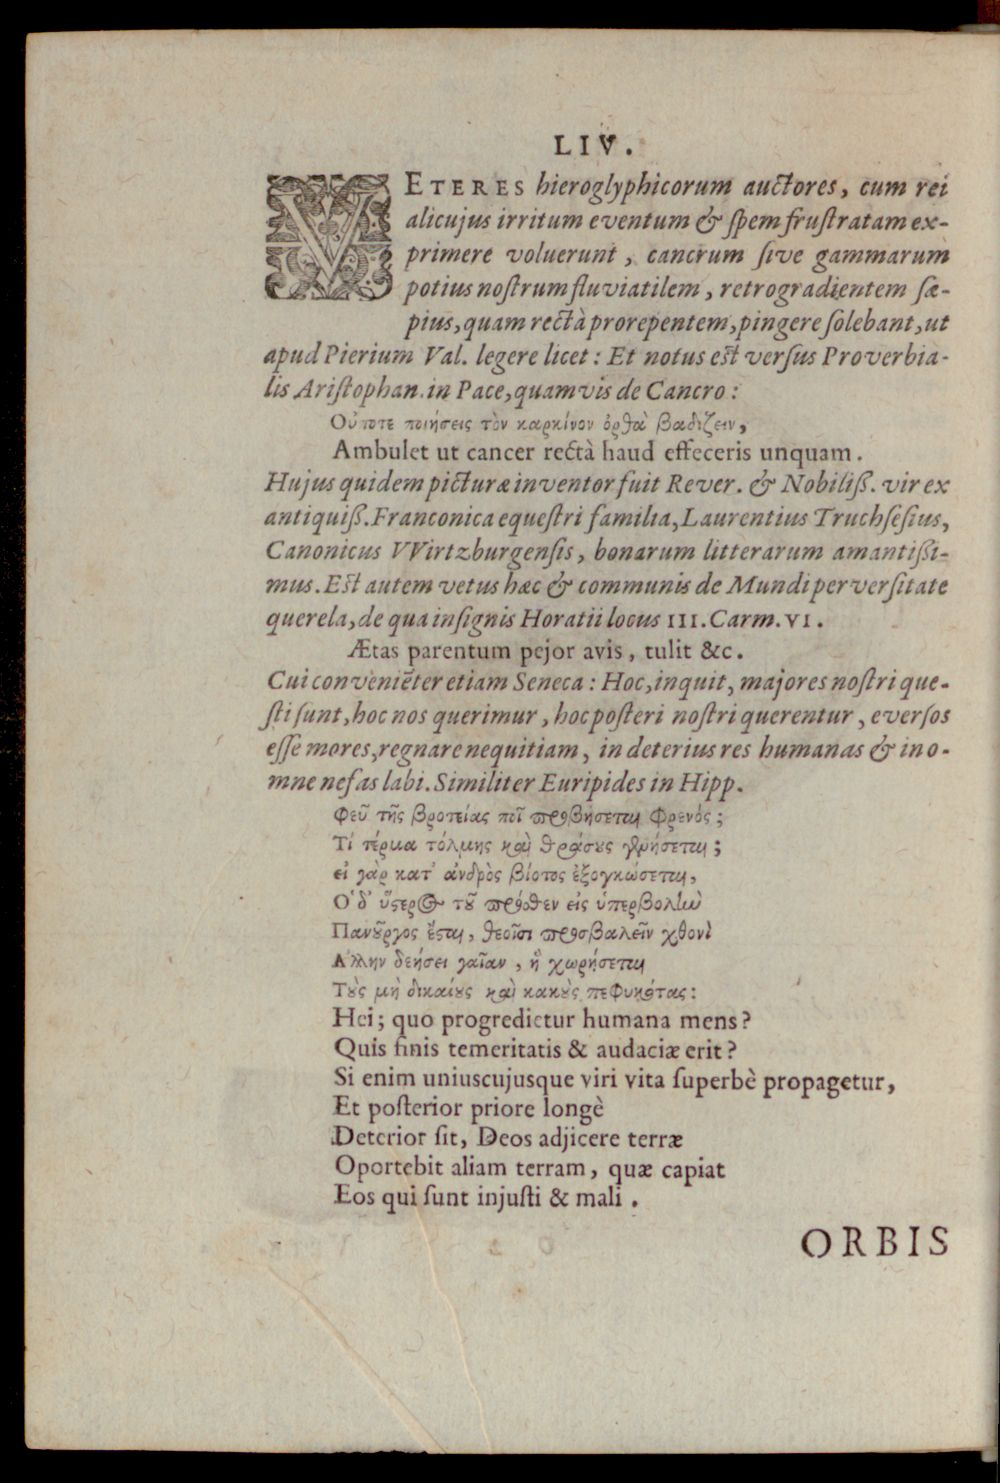 LIV.
VETERES hieroglyphicorum auctores, cum rei
alicujus irritum eventum & ſpem fruſtratam ex-
primere voluerunt, cancrum ſive gammarum
potius noſtrum fluviatilem, retrogradientem ſæ-
pius, quam rectà prorepentem, pingere ſolebant, ut
apud Pierium Val. legere licet: Et notus eſt verſus Proverbia-
lis Ariſtophan. in Pace, quamvis de Cancro:
Οὔποτε ποιήσεις τὸν καρκίνον ὀρθὰ βαδίζειν,
Ambulet ut cancer rectà haud effeceris unquam.
Hujus quidem picturæ inventor fuit Rever. & Nobiliß. vir ex
antiquiß. Franconica equeſtri familia, Laurentius Truchſeſius,
Canonicus VVirtzburgenſis, bonarum litterarum amantißi-
mus. Eſt autem vetus hæc & communis de Mundi perverſitate
querela, de qua inſignis Horatii locus III. Carm. VI.
Ætas parentum pejor avis, tulit &c.
Cui conveniẽter etiam Seneca: Hoc, inquit, majores noſtri que-
ſti ſunt, hoc nos querimur, hoc poſteri noſtri querentur, everſos
eſſe mores, regnare nequitiam, in deterius res humanas & in o-
mne nefas labi. Similiter Euripides in Hipp.
Φεῦ τῆς βροτείας ποῖ προβήσεται φρενός;
Τί τέρμα τόλμης καὶ θράσους γενήσεται;
εἰ γὰρ κατ' ἀνδρὸς βίοτος ἐξογκώσεται,
Ὁ δ' ὕστερος τοῦ πρόσθεν εἰς ὑπερβολὴν
Πανοῦργος ἔσται, θεοῖσι προσβαλεῖν χθονὶ
Ἄλλην δεήσει γαῖαν, ἣ χωρήσεται
Τοὺς μὴ δικαίους καὶ κακοὺς πεφυκότας:
Hei; quo progredietur humana mens?
Quis finis temeritatis & audaciæ erit?
Si enim uniuscujusque viri vita ſuperbè propagetur,
Et poſterior priore longè
Deterior ſit, Deos adjicere terræ
Oportebit aliam terram, quæ capiat
Eos qui ſunt injuſti & mali.
ORBIS